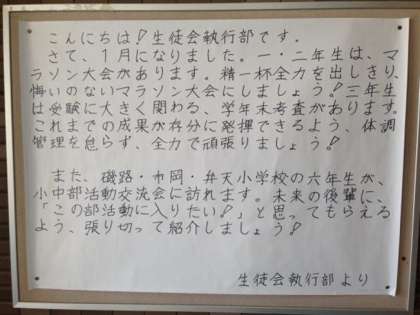 こんにちは！生徒会執行部です。
さて、1月になりました。一・二年生は、マ
ラソン大会があります。精一杯全力を出しきり、
悔いのないマラソン大会にしましょう！三年生
は受験に大きく関わる、学年末考査があります。
これまでの成果が存分に発揮できるよう、体調
管理を怠らず、全力で頑張りましょう！
また、磯路・市岡・弁天小学校の六年生が、
小中部活動交流会に訪れます。未来の後輩に、
「この部活動に入りたい！」と思ってもらえる
よう、張り切って紹介しましょう！
生徒会執行部より